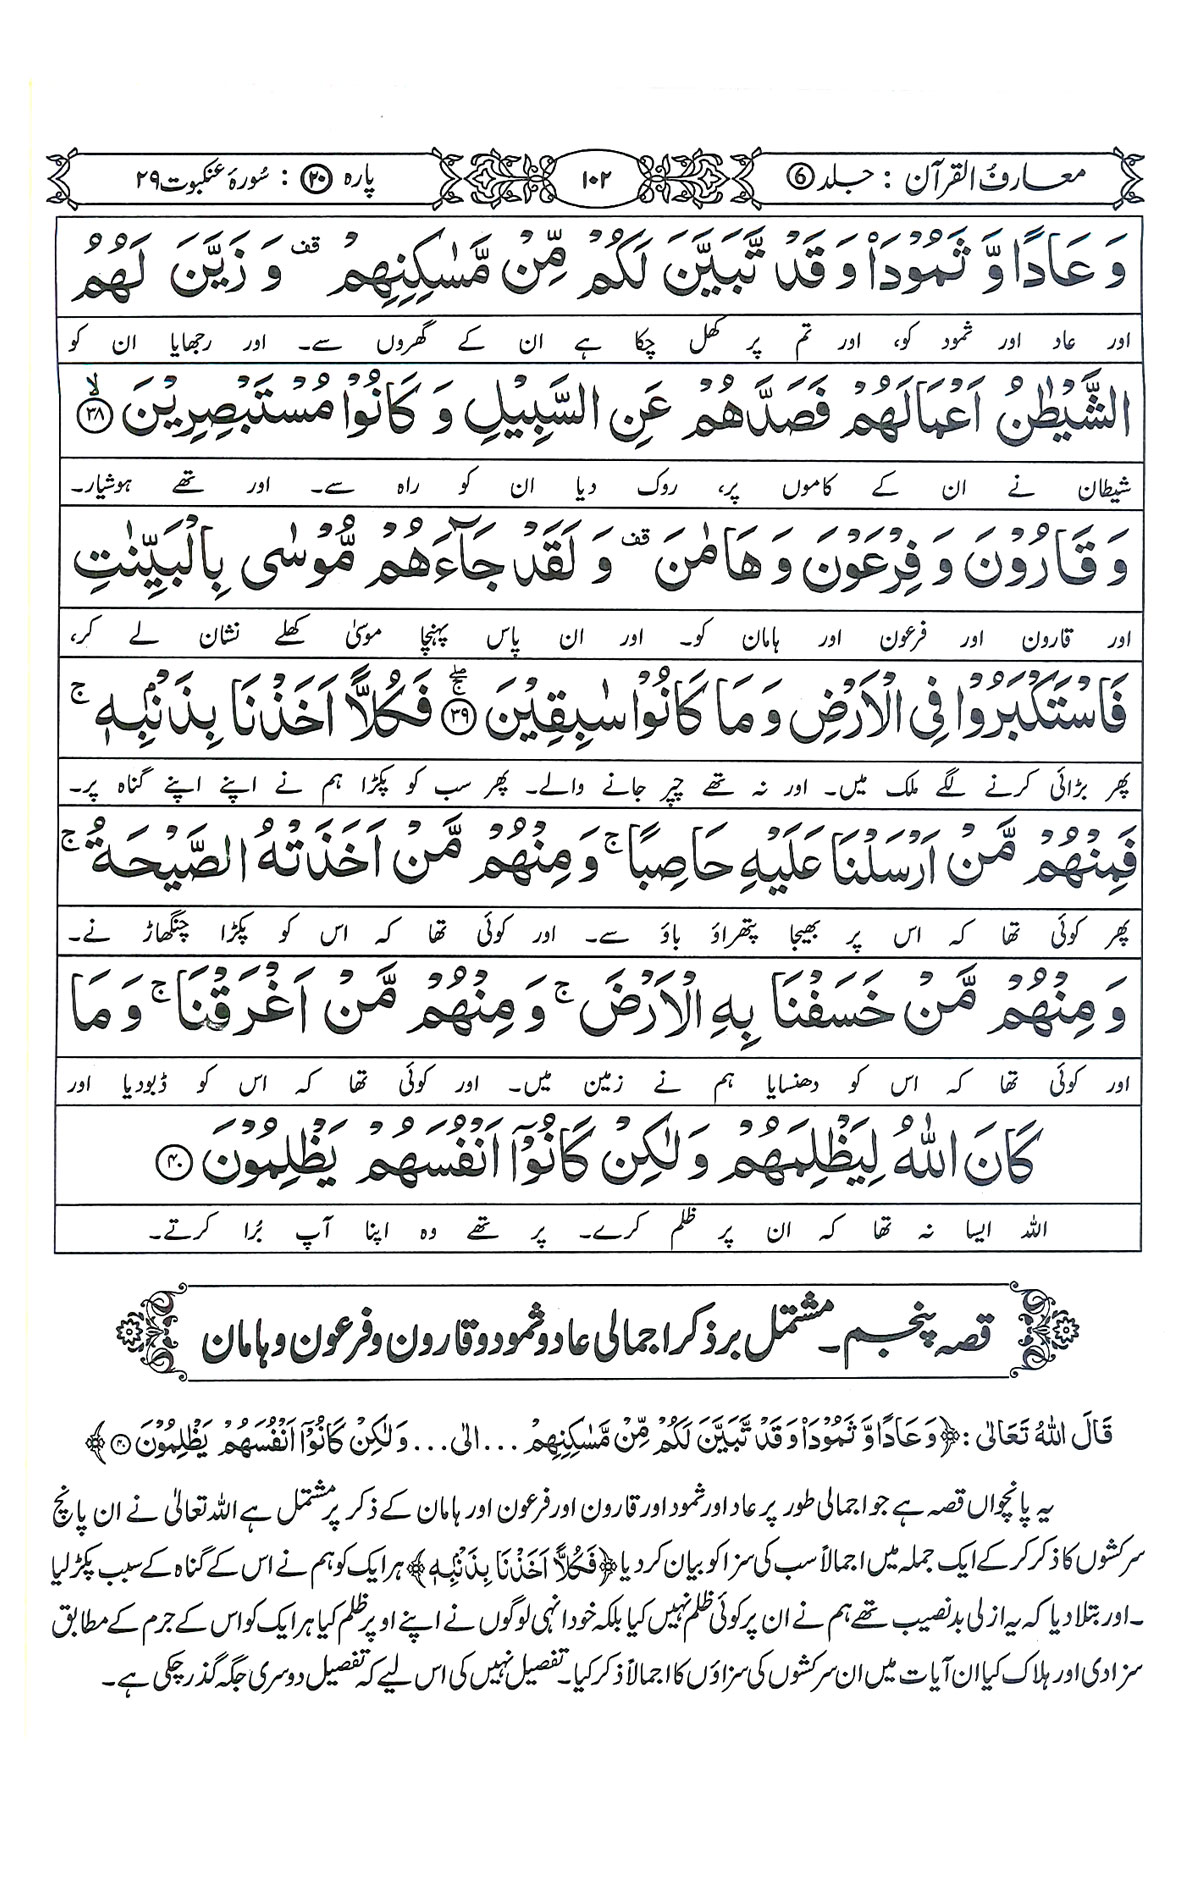 معارفُ القرآن : جلد ۶
۱۰۲
پارہ ۲۰ : سُورۂ عنکبوت ۲۹
وَ عَادًا وَّ ثَمُوْدَا۠ وَ قَدْ تَّبَیَّنَ لَكُمْ مِّنْ مَّسٰكِنِهِمْ ۫ قف وَ زَیَّنَ لَهُمُ
اور عاد اور ثمود کو، اور تم پر کھل چکا ہے ان کے گھروں سے۔ اور رجھایا ان کو
الشَّیْطٰنُ اَعْمَالَهُمْ فَصَدَّهُمْ عَنِ السَّبِیْلِ وَ كَانُوْا مُسْتَبْصِرِیْنَ ۙ﴿۳۸﴾
شیطان نے ان کے کاموں پر، روک دیا ان کو راہ سے۔ اور تھے ہوشیار۔
وَ قَارُوْنَ وَ فِرْعَوْنَ وَ هَامٰنَ ۫ قف وَ لَقَدْ جَآءَهُمْ مُّوْسٰی بِالْبَیِّنٰتِ
اور قارون اور فرعون اور ہامان کو۔ اور ان پاس پہنچا موسیٰ کھلے نشان لے کر،
فَاسْتَكْبَرُوْا فِی الْاَرْضِ وَ مَا كَانُوْا سٰبِقِیْنَ ﴿۳۹﴾ۚۖ فَكُلًّا اَخَذْنَا بِذَنْۢبِهٖ ۚ
پھر بڑائی کرنے لگے ملک میں۔ اور نہ تھے چپر جانے والے۔ پھر سب کو پکڑا ہم نے اپنے اپنے گناہ پر۔
فَمِنْهُمْ مَّنْ اَرْسَلْنَا عَلَیْهِ حَاصِبًا ۚ وَ مِنْهُمْ مَّنْ اَخَذَتْهُ الصَّیْحَةُ ۚ
پھر کوئی تھا کہ اس پر بھیجا پتھراؤ باؤ سے۔ اور کوئی تھا کہ اس کو پکڑا چنگھاڑ نے۔
وَ مِنْهُمْ مَّنْ خَسَفْنَا بِهِ الْاَرْضَ ۚ وَ مِنْهُمْ مَّنْ اَغْرَقْنَا ۚ وَ مَا
اور کوئی تھا کہ اس کو دھنسایا ہم نے زمین میں۔ اور کوئی تھا کہ اس کو ڈبودیا اور
كَانَ اللّٰهُ لِیَظْلِمَهُمْ وَ لٰكِنْ كَانُوْۤا اَنْفُسَهُمْ یَظْلِمُوْنَ ﴿۴۰﴾
اللہ ایسا نہ تھا کہ ان پر ظلم کرے۔ پر تھے وہ اپنا آپ بُرا کرتے۔
قصہ پنجم۔ مشتمل بر ذکر اجمالی عاد و ثمود و قارون و فرعون و ہامان
قَالَ اللهُ تَعَالٰی : ﴿وَ عَادًا وَّ ثَمُوْدَا۠ وَ قَدْ تَّبَیَّنَ لَكُمْ مِّنْ مَّسٰكِنِهِمْ ... الیٰ ... وَ لٰكِنْ كَانُوْۤا اَنْفُسَهُمْ یَظْلِمُوْنَ ۴۰﴾
یہ پانچواں قصہ ہے جو اجمالی طور پر عاد اور ثمود اور قارون اور فرعون اور ہامان کے ذکر پر مشتمل ہے اللہ تعالیٰ نے ان پانچ
سرکشوں کا ذکر کر کے ایک جملہ میں اجمالاً سب کی سزا کو بیان کردیا ﴿فَكُلًّا اَخَذْنَا بِذَنْۢبِهٖ﴾ ہر ایک کو ہم نے اس کے گناہ کے سبب پکڑ لیا
۔اور بتلادیا کہ یہ ازلی بدنصیب تھے ہم نے ان پر کوئی ظلم نہیں کیا بلکہ خود انہی لوگوں نے اپنے اوپر ظلم کیا ہر ایک کو اس کے جرم کے مطابق
سزا دی اور ہلاک کیا ان آیات میں ان سرکشوں کی سزاؤں کا اجمالاً ذکر کیا۔ تفصیل نہیں کی اس لیے کہ تفصیل دوسری جگہ گذر چکی ہے۔